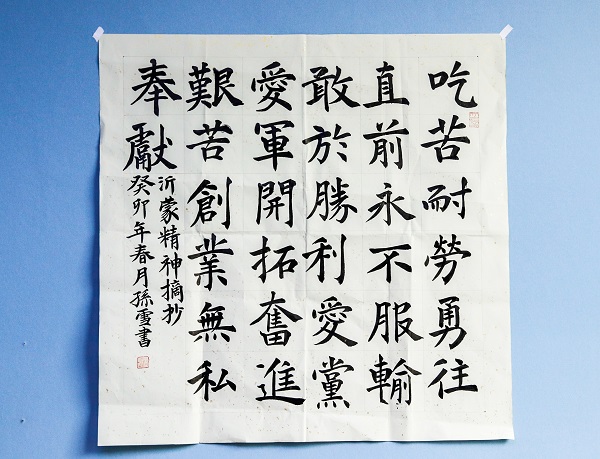 吃苦耐勞勇往
直前永不服輸
敢於勝利愛黨
愛軍開拓奮進
艱苦創業無私
奉獻
沂蒙精神摘抄
癸卯年春月孫雪書